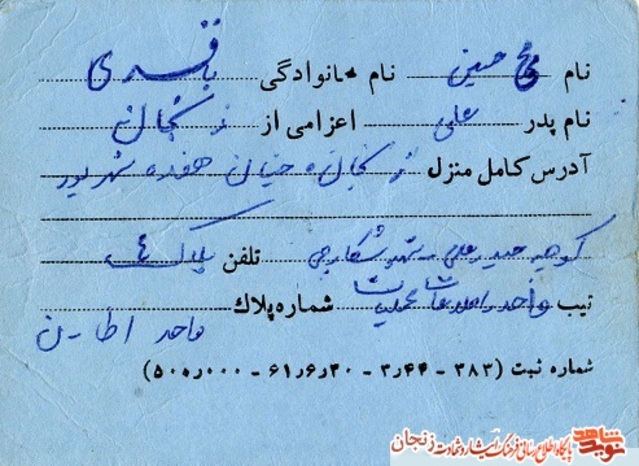 نام محمد حسین نام خانوادگی باقری
نام پدر علی اعزامی از زنجان
آدرس کامل منزل زنجان خیابان هفده شهریور
کوچه حیدر علی تلفن پلاک ٤
تیپ واحد اطلاعات عملیات شماره پلاك
واحد
شماره ثبت (۳۸۳ - ۳٫۴۴ - ۶۱٫۶٫۲۰ - ۵۰۰٫۰۰۰)
نوید شاهد پایگاه اطلاع رسانی فرهنگ ایثار و شهادت زنجان